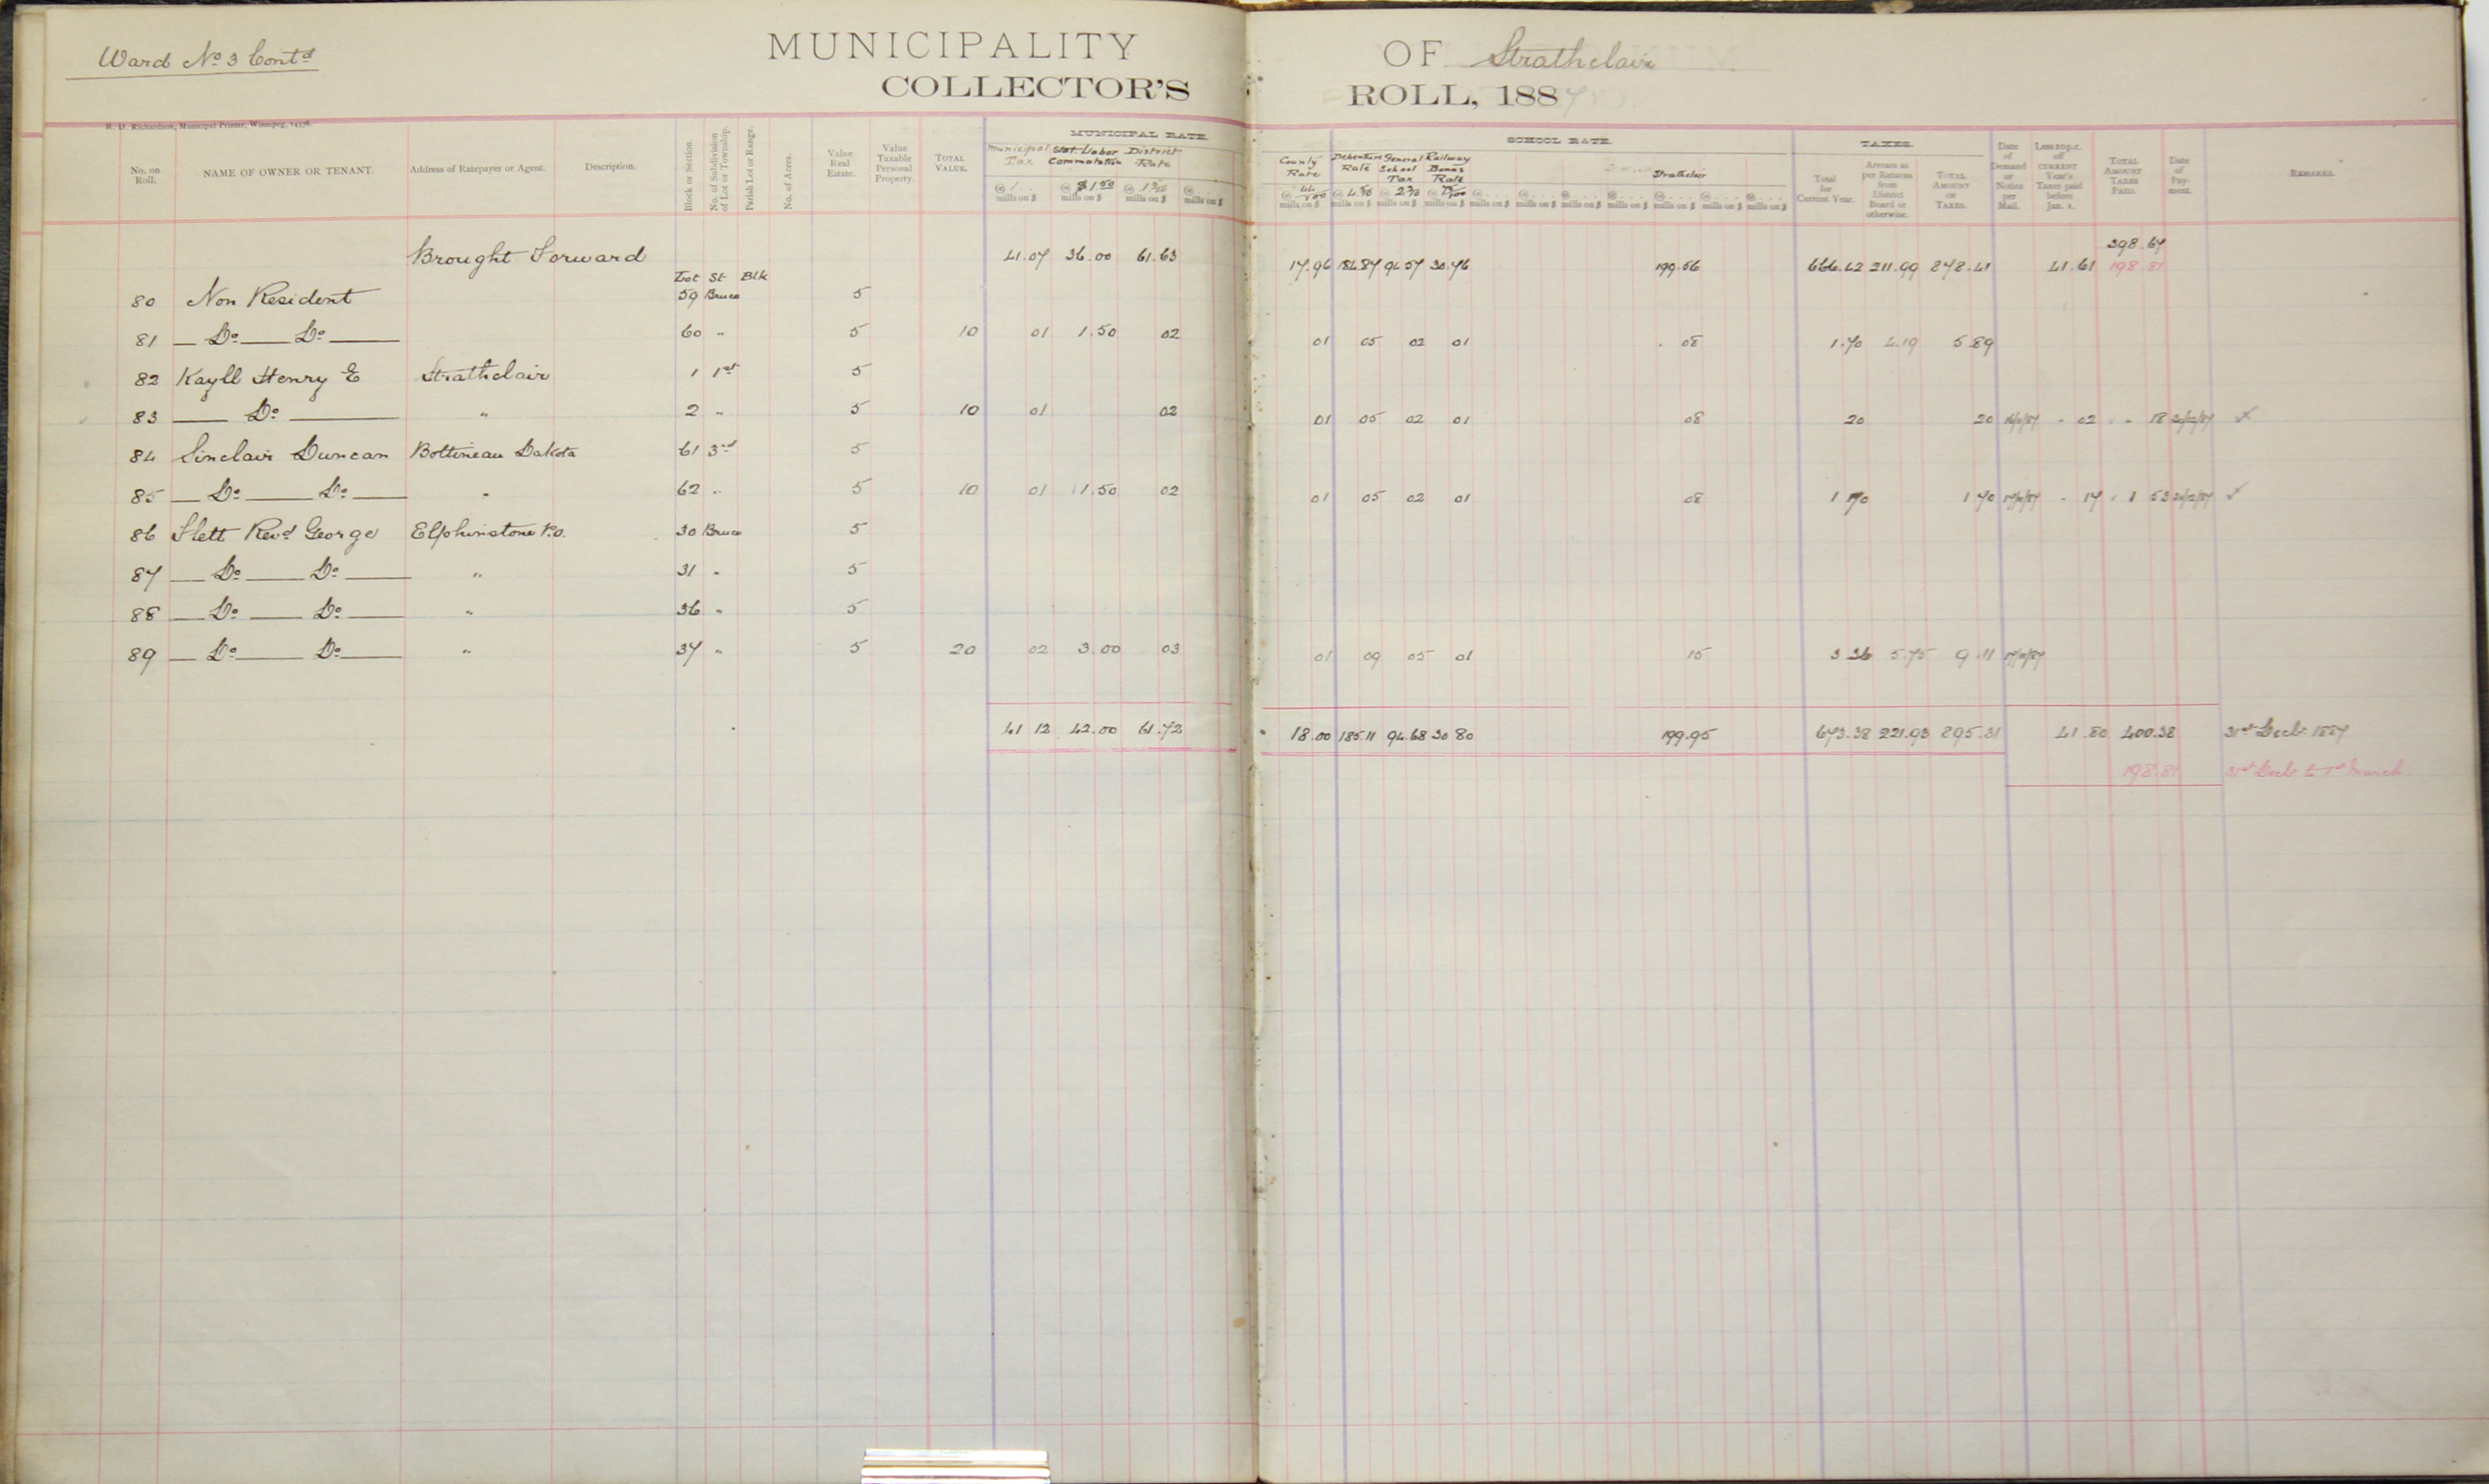 Ward No 3 Contd
MUNICIPALITY OF Strathclair
COLLECTOR'S ROLL, 1887
R. D. Richardson, Municipal Printer, Winnipeg, 14378.
No. on Roll. NAME OF OWNER OR TENANT. Address of Ratepayer or Agent. Description. Block or Section. No. of Subdivision of Lot or Township. Parish Lot or Range. No. of Acres. Value Real Estate. Value Taxable Personal Property. TOTAL VALUE. MUNICIPAL RATE. Municipal Tax Stat. Labor Commutation District Rate County Rate Debenture Rate General School Tax Railway Bonus Rate SCHOOL RATE. Strathclair TAXES. Total for Current Year. Arrears as per Returns from District Board or otherwise. TOTAL AMOUNT OF TAXES. Date of Demand or Notice per Mail. Less 10 p.c. off CURRENT Year's Taxes paid before Jan. 1. TOTAL AMOUNT TAXES PAID. Date of Payment. REMARKS.
mills on $ mills on $ mills on $ mills on $ mills on $ mills on $ mills on $ mills on $ mills on $ mills on $ mills on $ mills on $ mills on $ mills on $ mills on $
398.67
Brought Forward 41.07 36.00 61.63 17.96 184.87 94.57 30.76 199.56 666.42 211.99 878.41 41.61 198.81
Lot St Blk
80 Non Resident 59 Bruce 5
81 — Do — Do — 60 " 5 10 01 1.50 02 01 05 02 01 08 1.70 4.19 5.89
82 Kayll Henry E Strathclair 1 1st 5
83 — Do — " 2 " 5 10 01 02 01 05 02 01 08 20 20 02 18
84 Sinclair Duncan Bottineau Dakota 61 3rd 5
85 — Do — Do — " 62 " 5 10 01 1.50 02 01 05 02 01 08 1 70 1 70 17 1 53
86 Flett Revd George Elphinstone P.O. 30 Bruce 5
87 — Do — Do — " 31 " 5
88 — Do — Do — " 36 " 5
89 — Do — Do — " 37 " 5 20 02 3.00 03 01 09 05 01 15 3 36 5.75 9.11
41 12 42.00 61.72 18.00 185.11 94.68 30 80 199.95 673.38 221.93 895.31 41.80 400.38 31st Decbr 1887
198.81 31st Decbr to 1st March